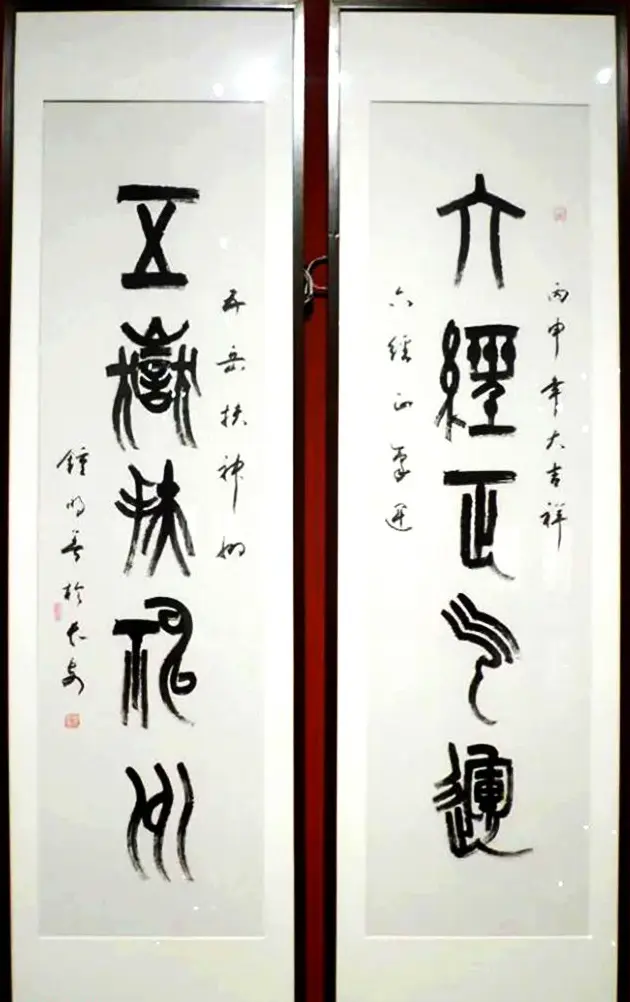 丙申年大吉祥
六經正气運
六經正氣運
五岳扶神州
五嶽扶神州
鍾明善於長安